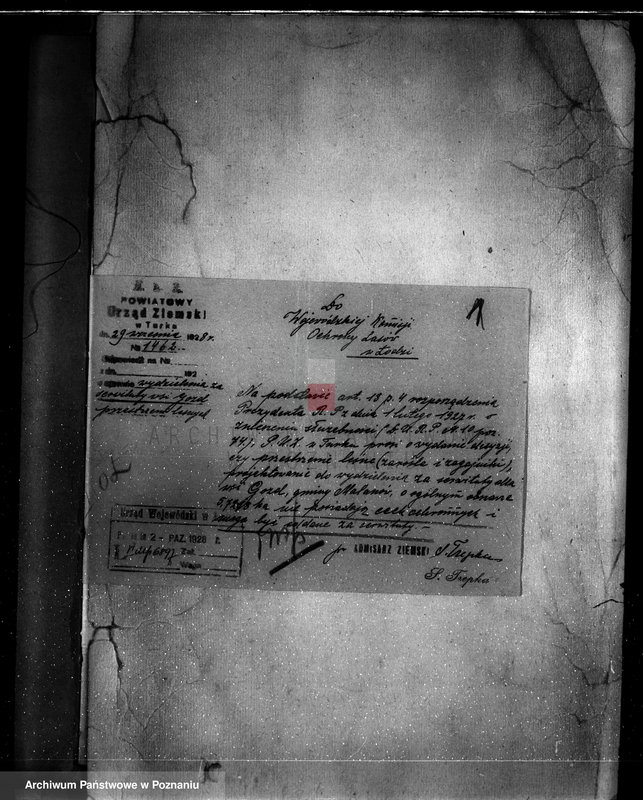 POWIATOWY
Urząd Ziemski
w Turku
dn. 29 września 1928 r.
№ 1462.-
Odpowiedź na №
z dn. 192
w sprawie wydzielenia za
serwituty wsi Gozd
przestrzeni leśnych
Do
Wojewódzkiej Komisji
Ochrony Lasów
w Łodzi
Na podstawie art. 13 p. 4 rozporządzenia
Prezydenta R.P. z dnia 1 lutego 1927 r. o
zniesieniu służebności (Dz. U. R. P. № 10 poz.
74), P.U.Z. w Turku prosi o wydanie decyzji,
czy przestrzenie leśne (zarośla i zagajniki),
projektowane do wydzielenia za serwituty dla
wsi Gozd, gminy Malanów, o ogólnym obszarze
ha nie posiadają cech ochronnych i
mogą być oddane za serwituty -
KOMISARZ ZIEMSKI
S. Trepka
Urząd Wojewódzki w
2 - PAZ. 1928 r.
Zał.
Archiwum Państwowe w Poznaniu